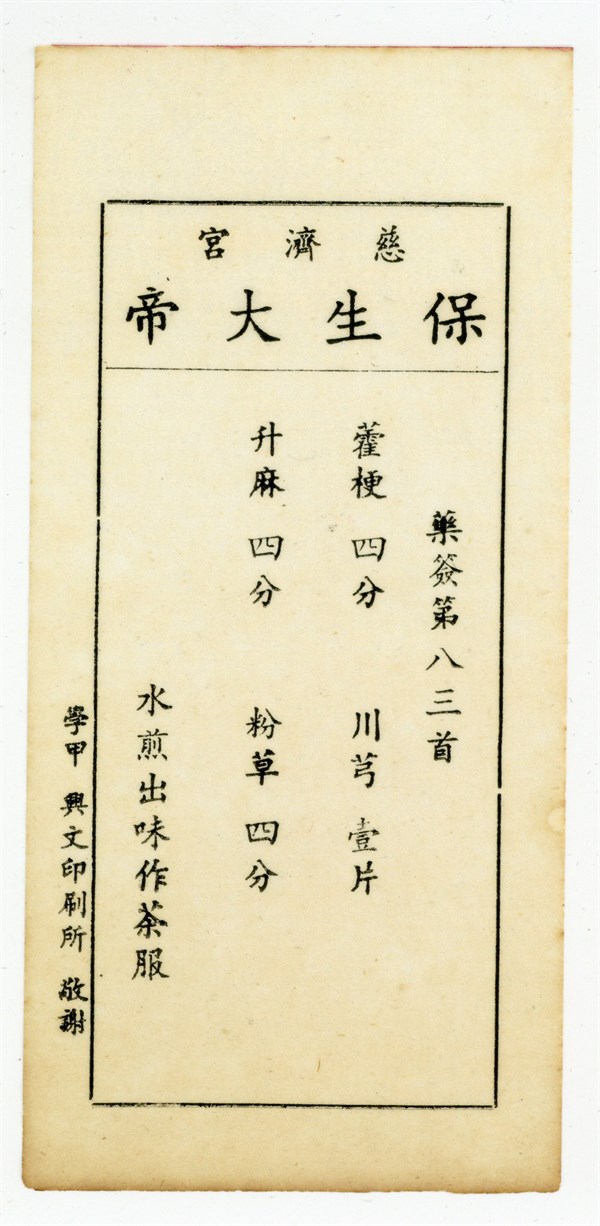 慈濟宮
保生大帝
藥簽第八三首
藿梗 四分 川芎 壹片
升麻 四分 粉草 四分
水煎出味作茶服
學甲 興文印刷所 敬謝